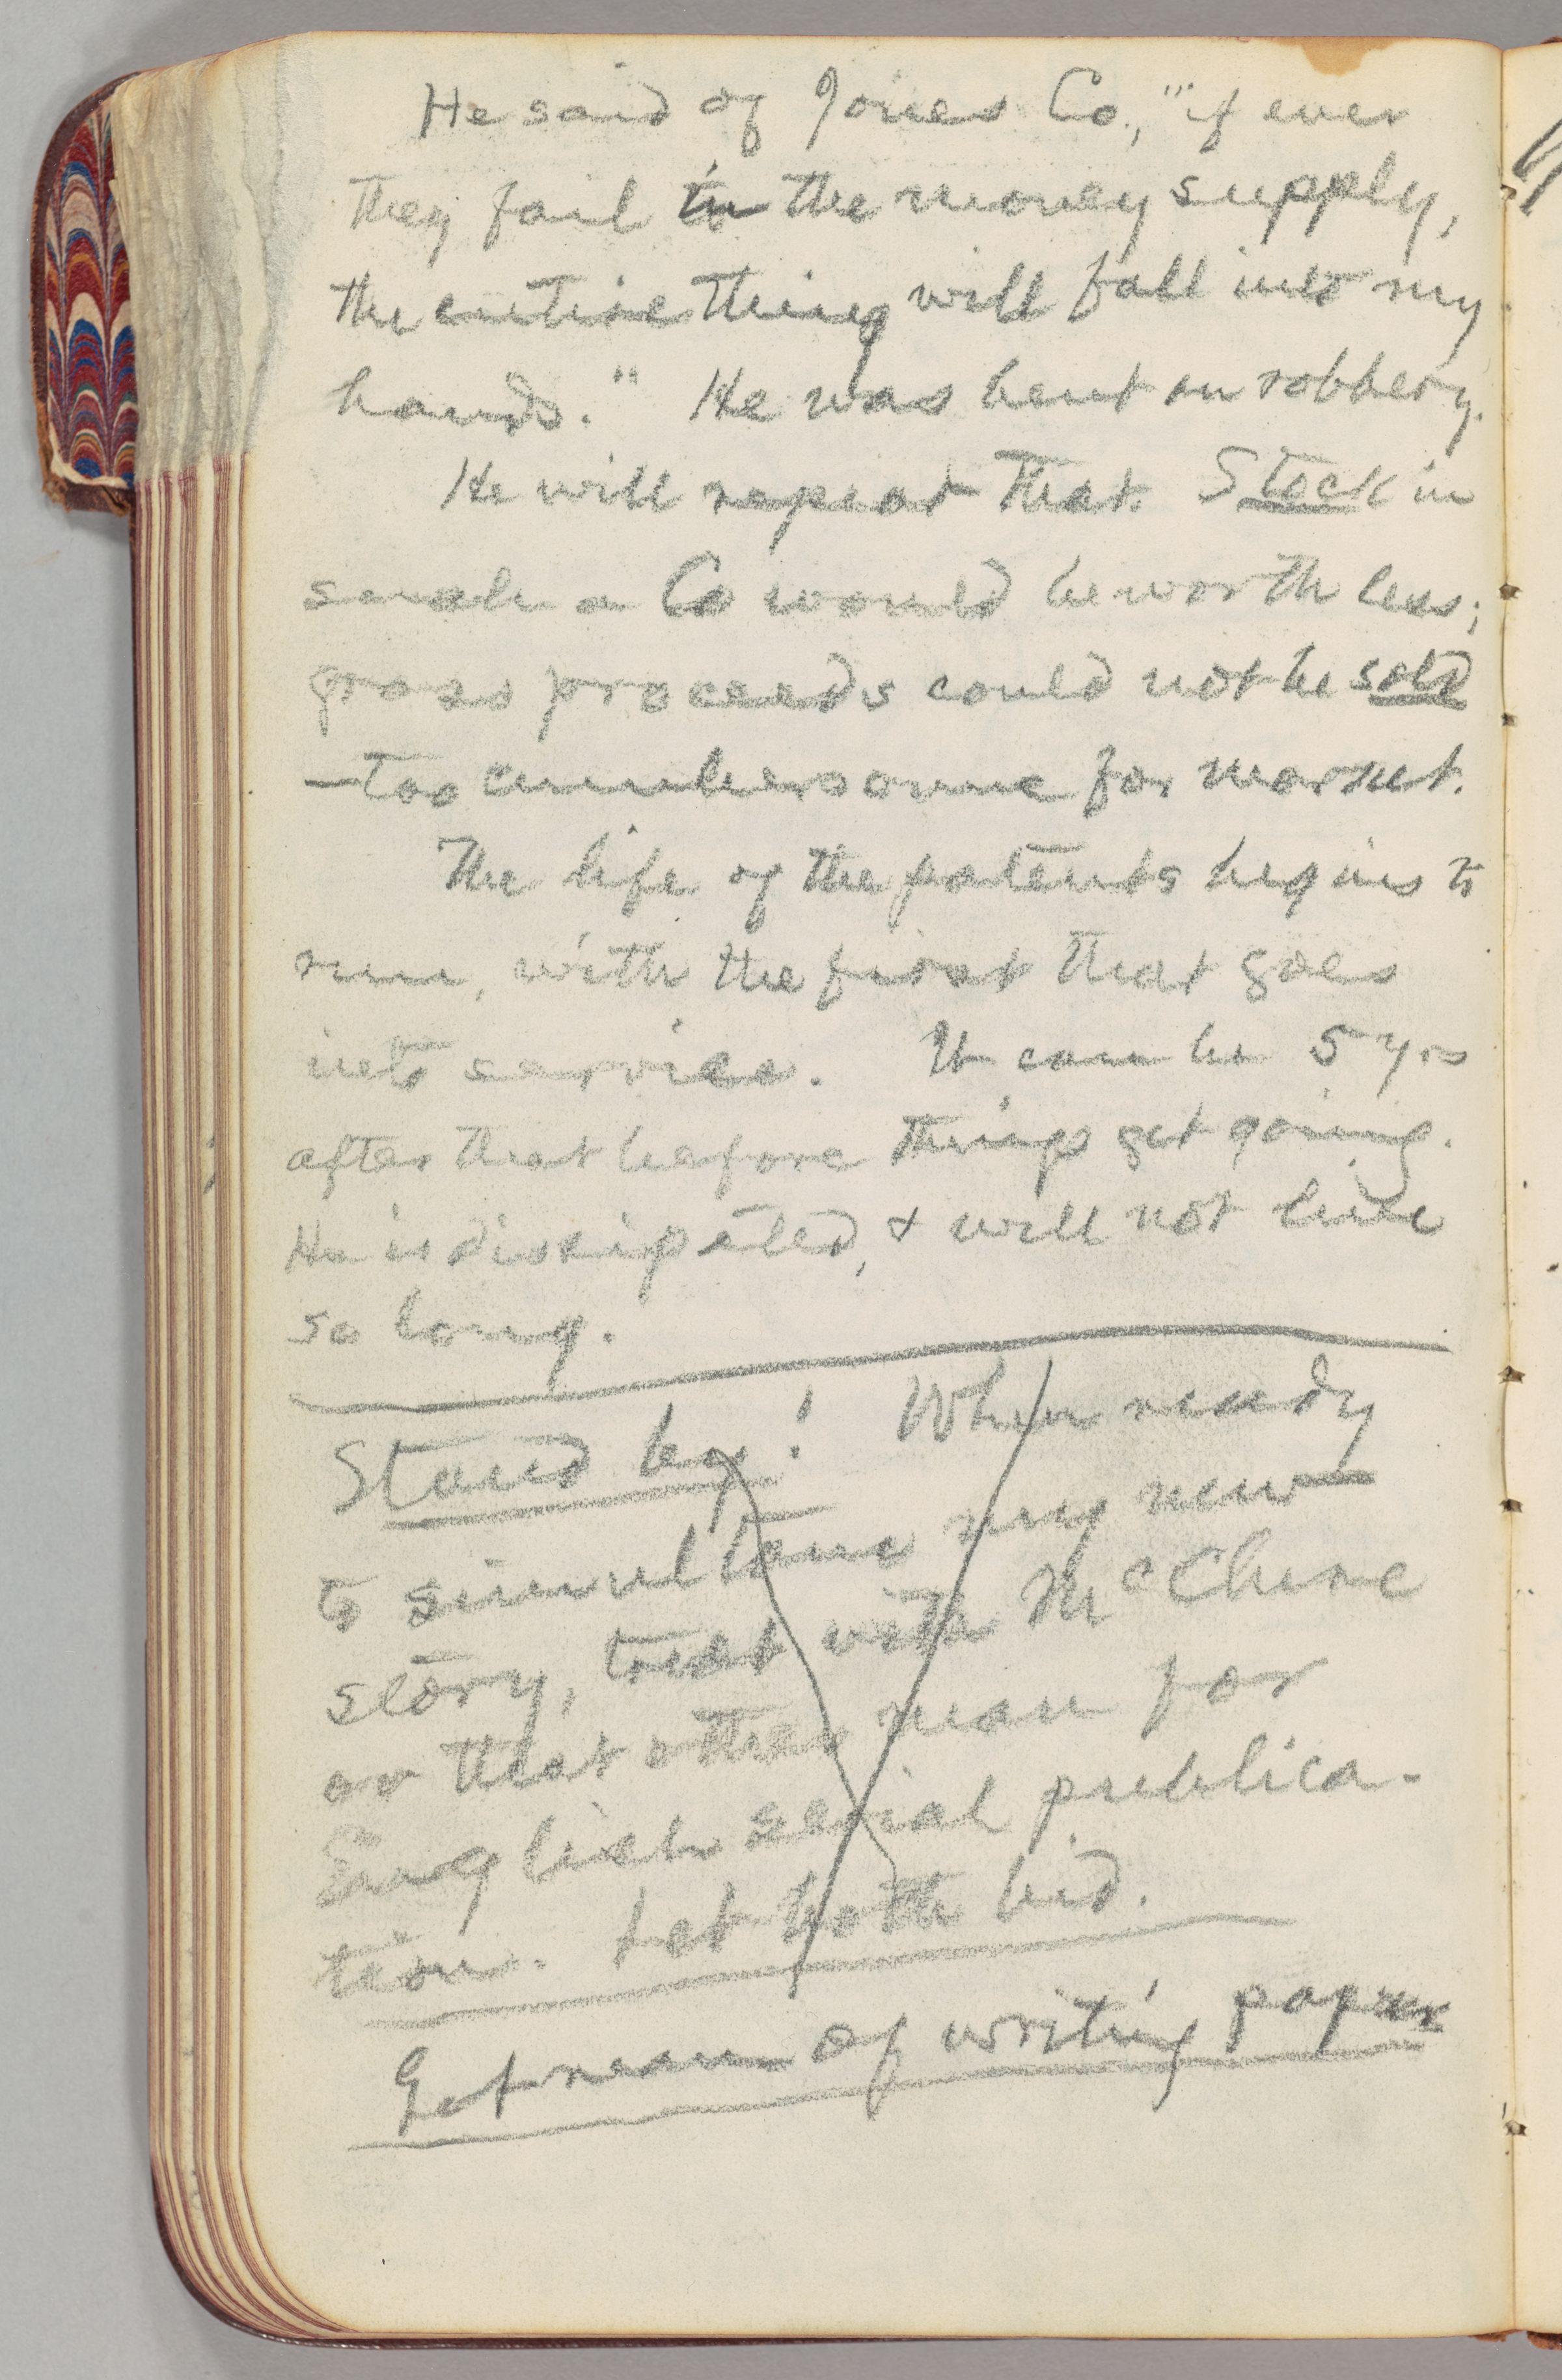 He said of Jones Co., "if ever
they fail in the money supply,
the entire thing will fall into my
hands." He was bent on robbery.
He will repeat that. Stock in
such a Co would be worth less;
gross proceeds could not be sold
—too cumbersome for market.
The life of the patents begins to
run, with the first that goes
into service. It can be 5 yrs
after that before things get going.
He is dissipated, & will not live
so long.
Stand by! When ready
to simultane my new
story, treat with McClure
or that other man for
English serial publica-
tion. Let both bid.
Get ream of writing paper